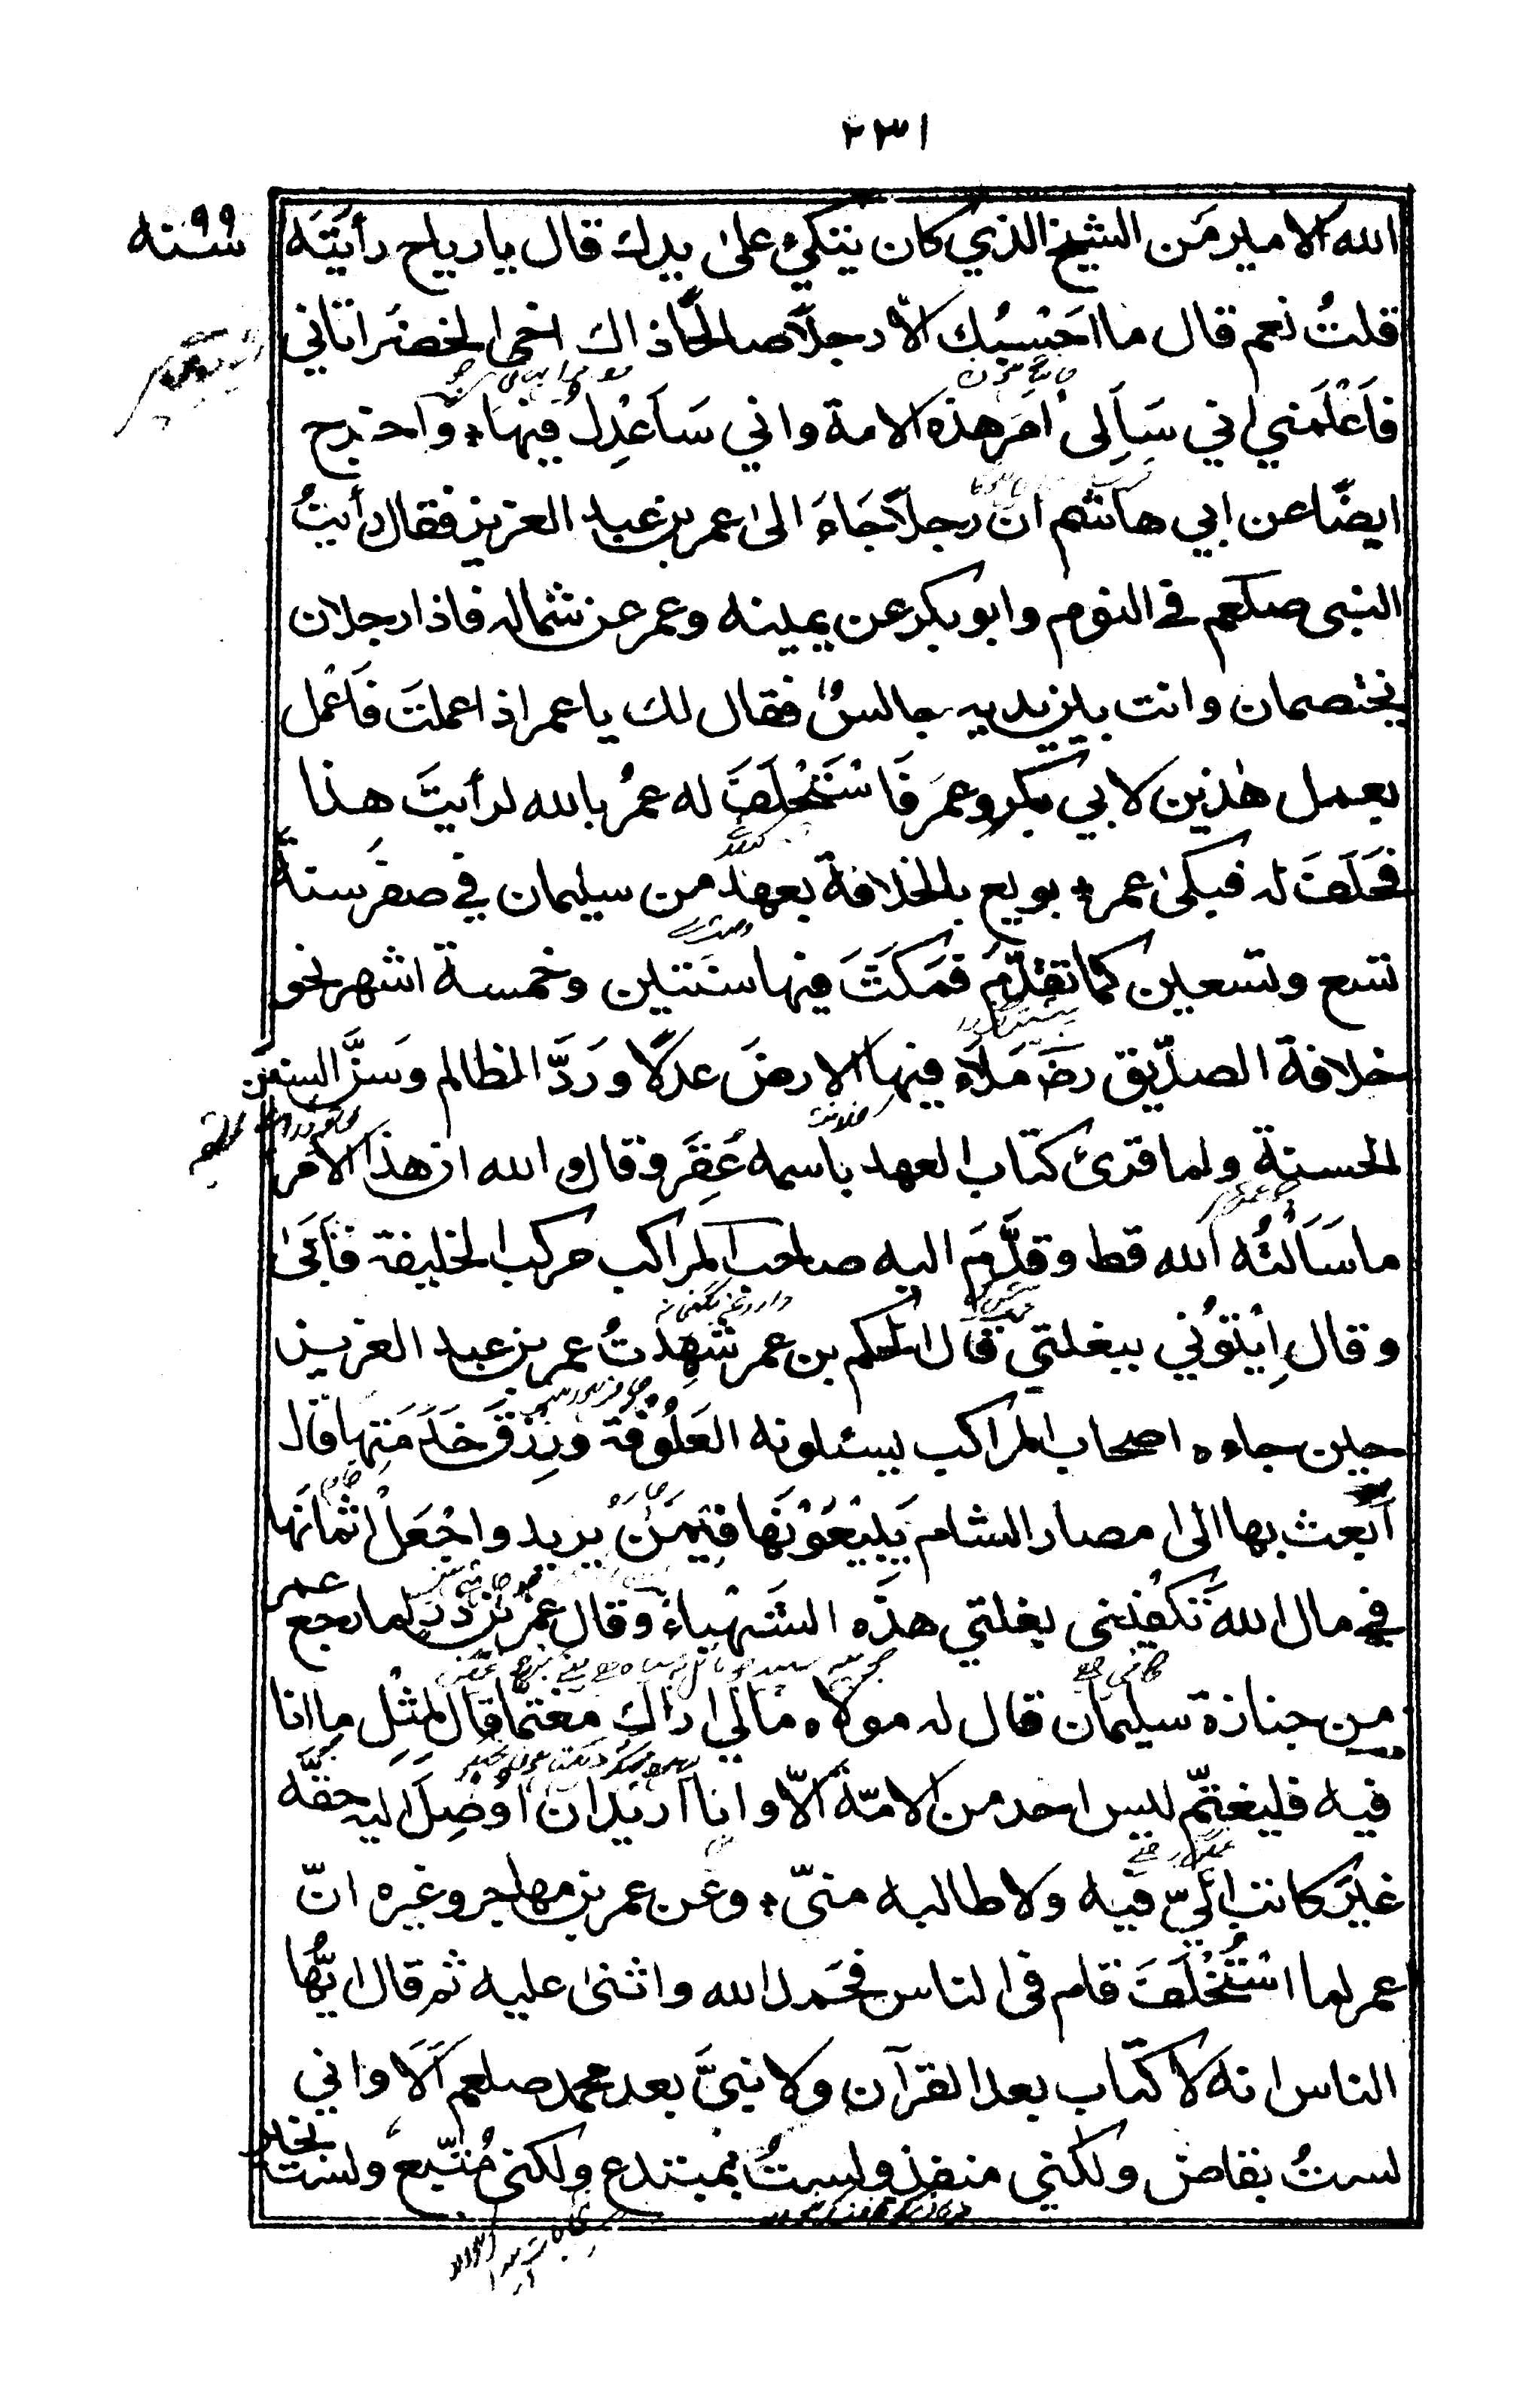 ٢٣١
سنة ٩٩
الله الامير مَن الشيخ الذي كان يتكيء على يدك قال يا رياح رأيتَه
قلتُ نعم قال ما احَسِبُك الّا رجلًا صالحًا ذاك اخى الخضر اتاني
فاَعْلَمَني اني سَاَلِى اَمَر هذه الامة واني سَاَعْدِل فيها ٭ واخرج
ايضًا عن ابي هاشم ان رجلًا جَاءَ الى عمر بن عبد العزيز فقال رأيتُ
النبى صلعم في النوم وابو بكر عن يمينه وعمر عن شماله فاذا رجلان
يختصمان وانت بين يديه جالسٌ فقال لك يا عمر اذا عملتَ فَاعْمل
بعمل هٰذين لابي بكر وعمَر فَاسْتَحْلَفَ له عمُر بالله لرأيتَ هذا
فحَلَفَ له فبكى عمر ٭ بويع بالخلافة بعهد من سليمان في صفر سنة
تسع وتسعين كما تقدّمَ فمَكَثَ فيها سَنَتين وخمسة اشهر نحو
خلافة الصدّيق رضَ مَلَأَ فيها الارضَ عدلًا ورَدَّ المظالم وَسَنَّ السنن
الحسنة ولما قرئ كتاب العهد باسمه عُقِرَ وقال والله ان هذا الامر
ما سَاَلْتُه الله قط وقدَّمَ اليه صاحب المراكب مركب الخليفة فَاَبَى
وقال اِيْتوُني ببغلتي قال الحكم بن عمر شَهِدتُ عمر بن عبد العزيز
حين جاءه اصحاب المراكب يسئلونه العَلُوفة ورِزْقَ خَدَمَتِهَا قال
اَبعث بها الى امصار الشام يَبِيْعُوْنَهَا فيْمَنْ يريد واجْعَلْ اثمانَها
في مال الله تَكفيْني بغلتي هذه الشَهْباءُ وقال عمرُ بن ذر لما رجع عمر
من جنازة سليمان قال له مولاه مَا لي اراك مغتمًّا قال لمثلِ ما انا
فيه فليغتمّ ليس احد من الامّة الّا وانا اريد ان اُوْصِلَ اليه حقَّه
غيرَ كاتب اليّ فيه ولا طالبه منيّ ٭ وعن عمر بن مهاجر وغيره انّ
عمر لما اسْتُخْلَفَ قام فى الناس فحَمد الله واثنى عليه ثم قال ايّهُا
الناس انه لا كتاب بعد القرآن ولا نبيَّ بعد محمد صلعم اَلَا واني
لستُ بقاضٍ ولكني منفذ ولستُ بمبتدع ولكني مُتّبع ولستُ بخير